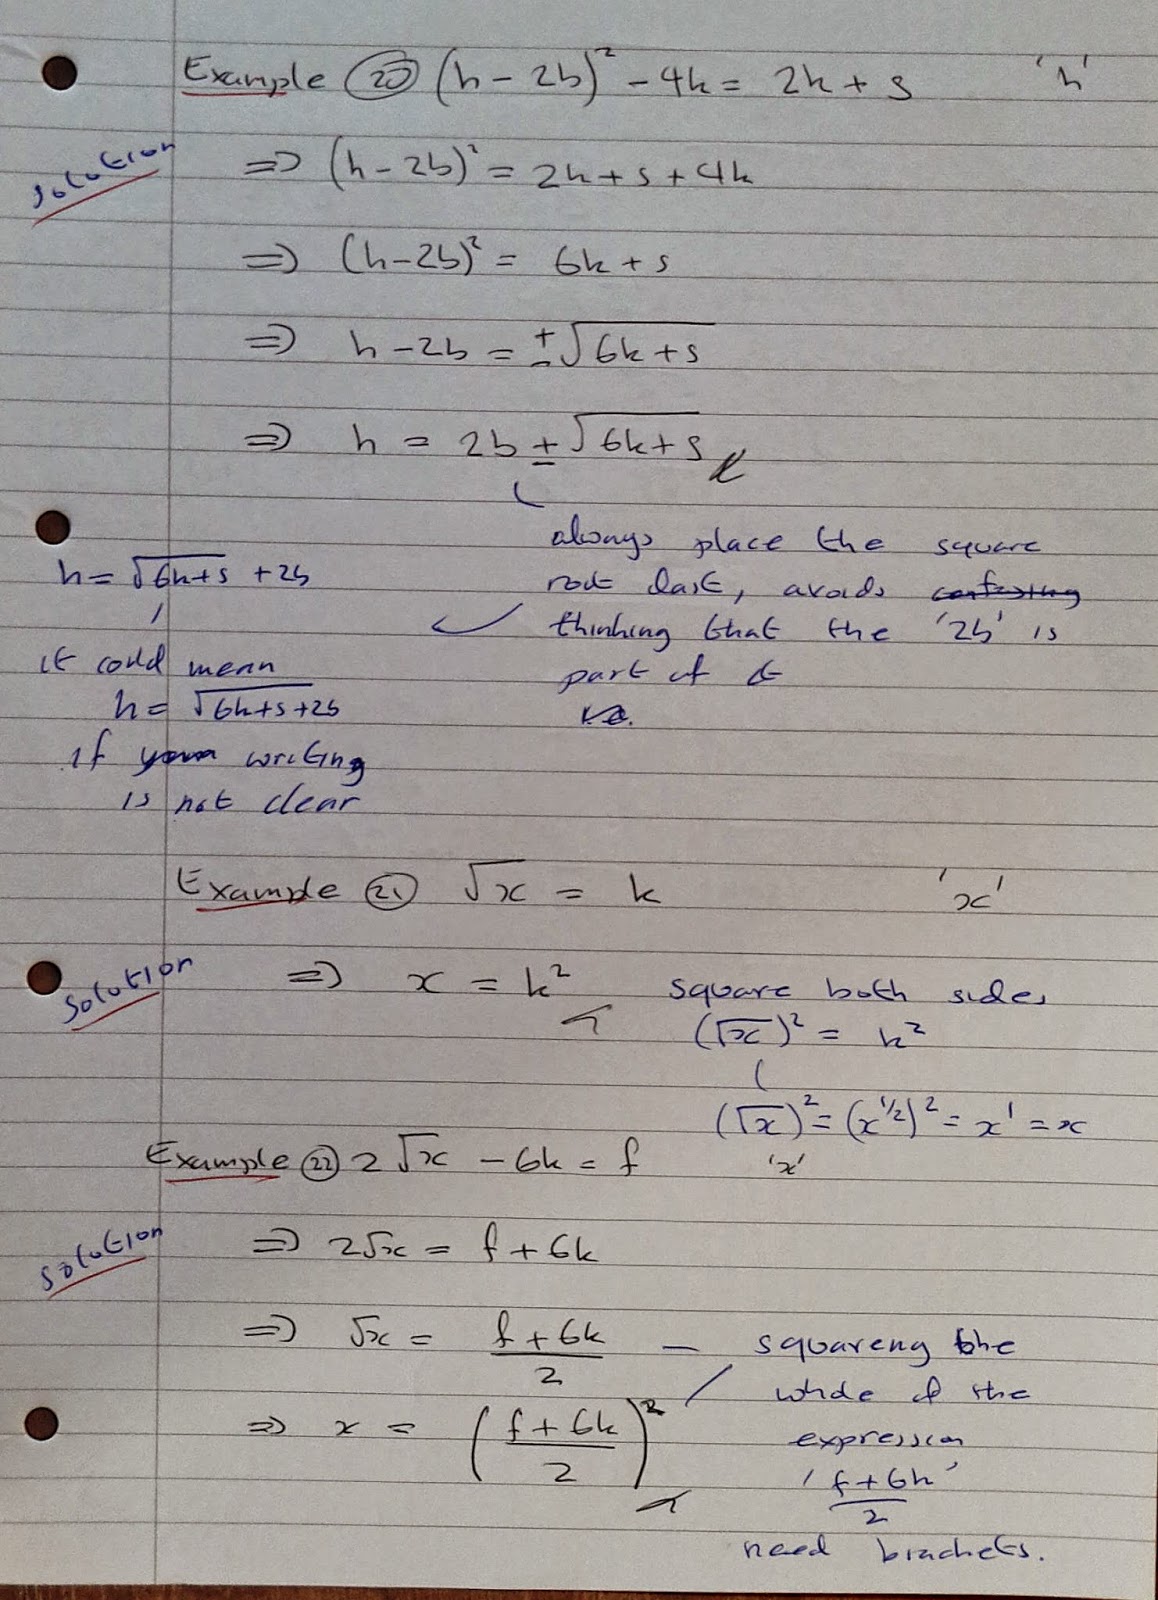 Example 20 (h - 2b)² - 4k = 2k + s 'h'
Solution
⇒ (h - 2b)² = 2k + s + 4k
⇒ (h - 2b)² = 6k + s
⇒ h - 2b = ±√(6k + s)
⇒ h = 2b ± √(6k + s)
always place the square
root last, avoids confusing
thinking that the '2b' is
part of it
h = √(6k+s) + 2b
it could mean
h = √(6k+s+2b)
if your writing
is not clear
Example 21 √x = k 'x'
Solution
⇒ x = k²
square both sides
(√x)² = k²
(√x)² = (x^1/2)² = x¹ = x
Example 22 2√x - 6k = f 'x'
Solution
⇒ 2√x = f + 6k
⇒ √x = (f + 6k)/2
⇒ x = ((f + 6k)/2)²
squareing the
whole of the
expression
'(f + 6k)/2'
need brackets.